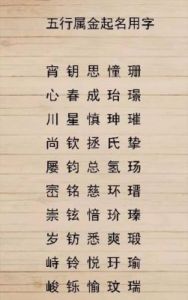 五行属金起名用字
宵 钥 思 憧 珊
心 春 成 珆 璟
川 星 慎 珅 璀
尚 钦 拯 氏 挚
屡 钧 总 氢 玚
密 铭 慈 环 瑨
崇 铉 愔 玠 瑧
岁 钫 悉 爽 瑕
峙 铃 悦 玗 瑜
峻 铄 愉 玟 瑞